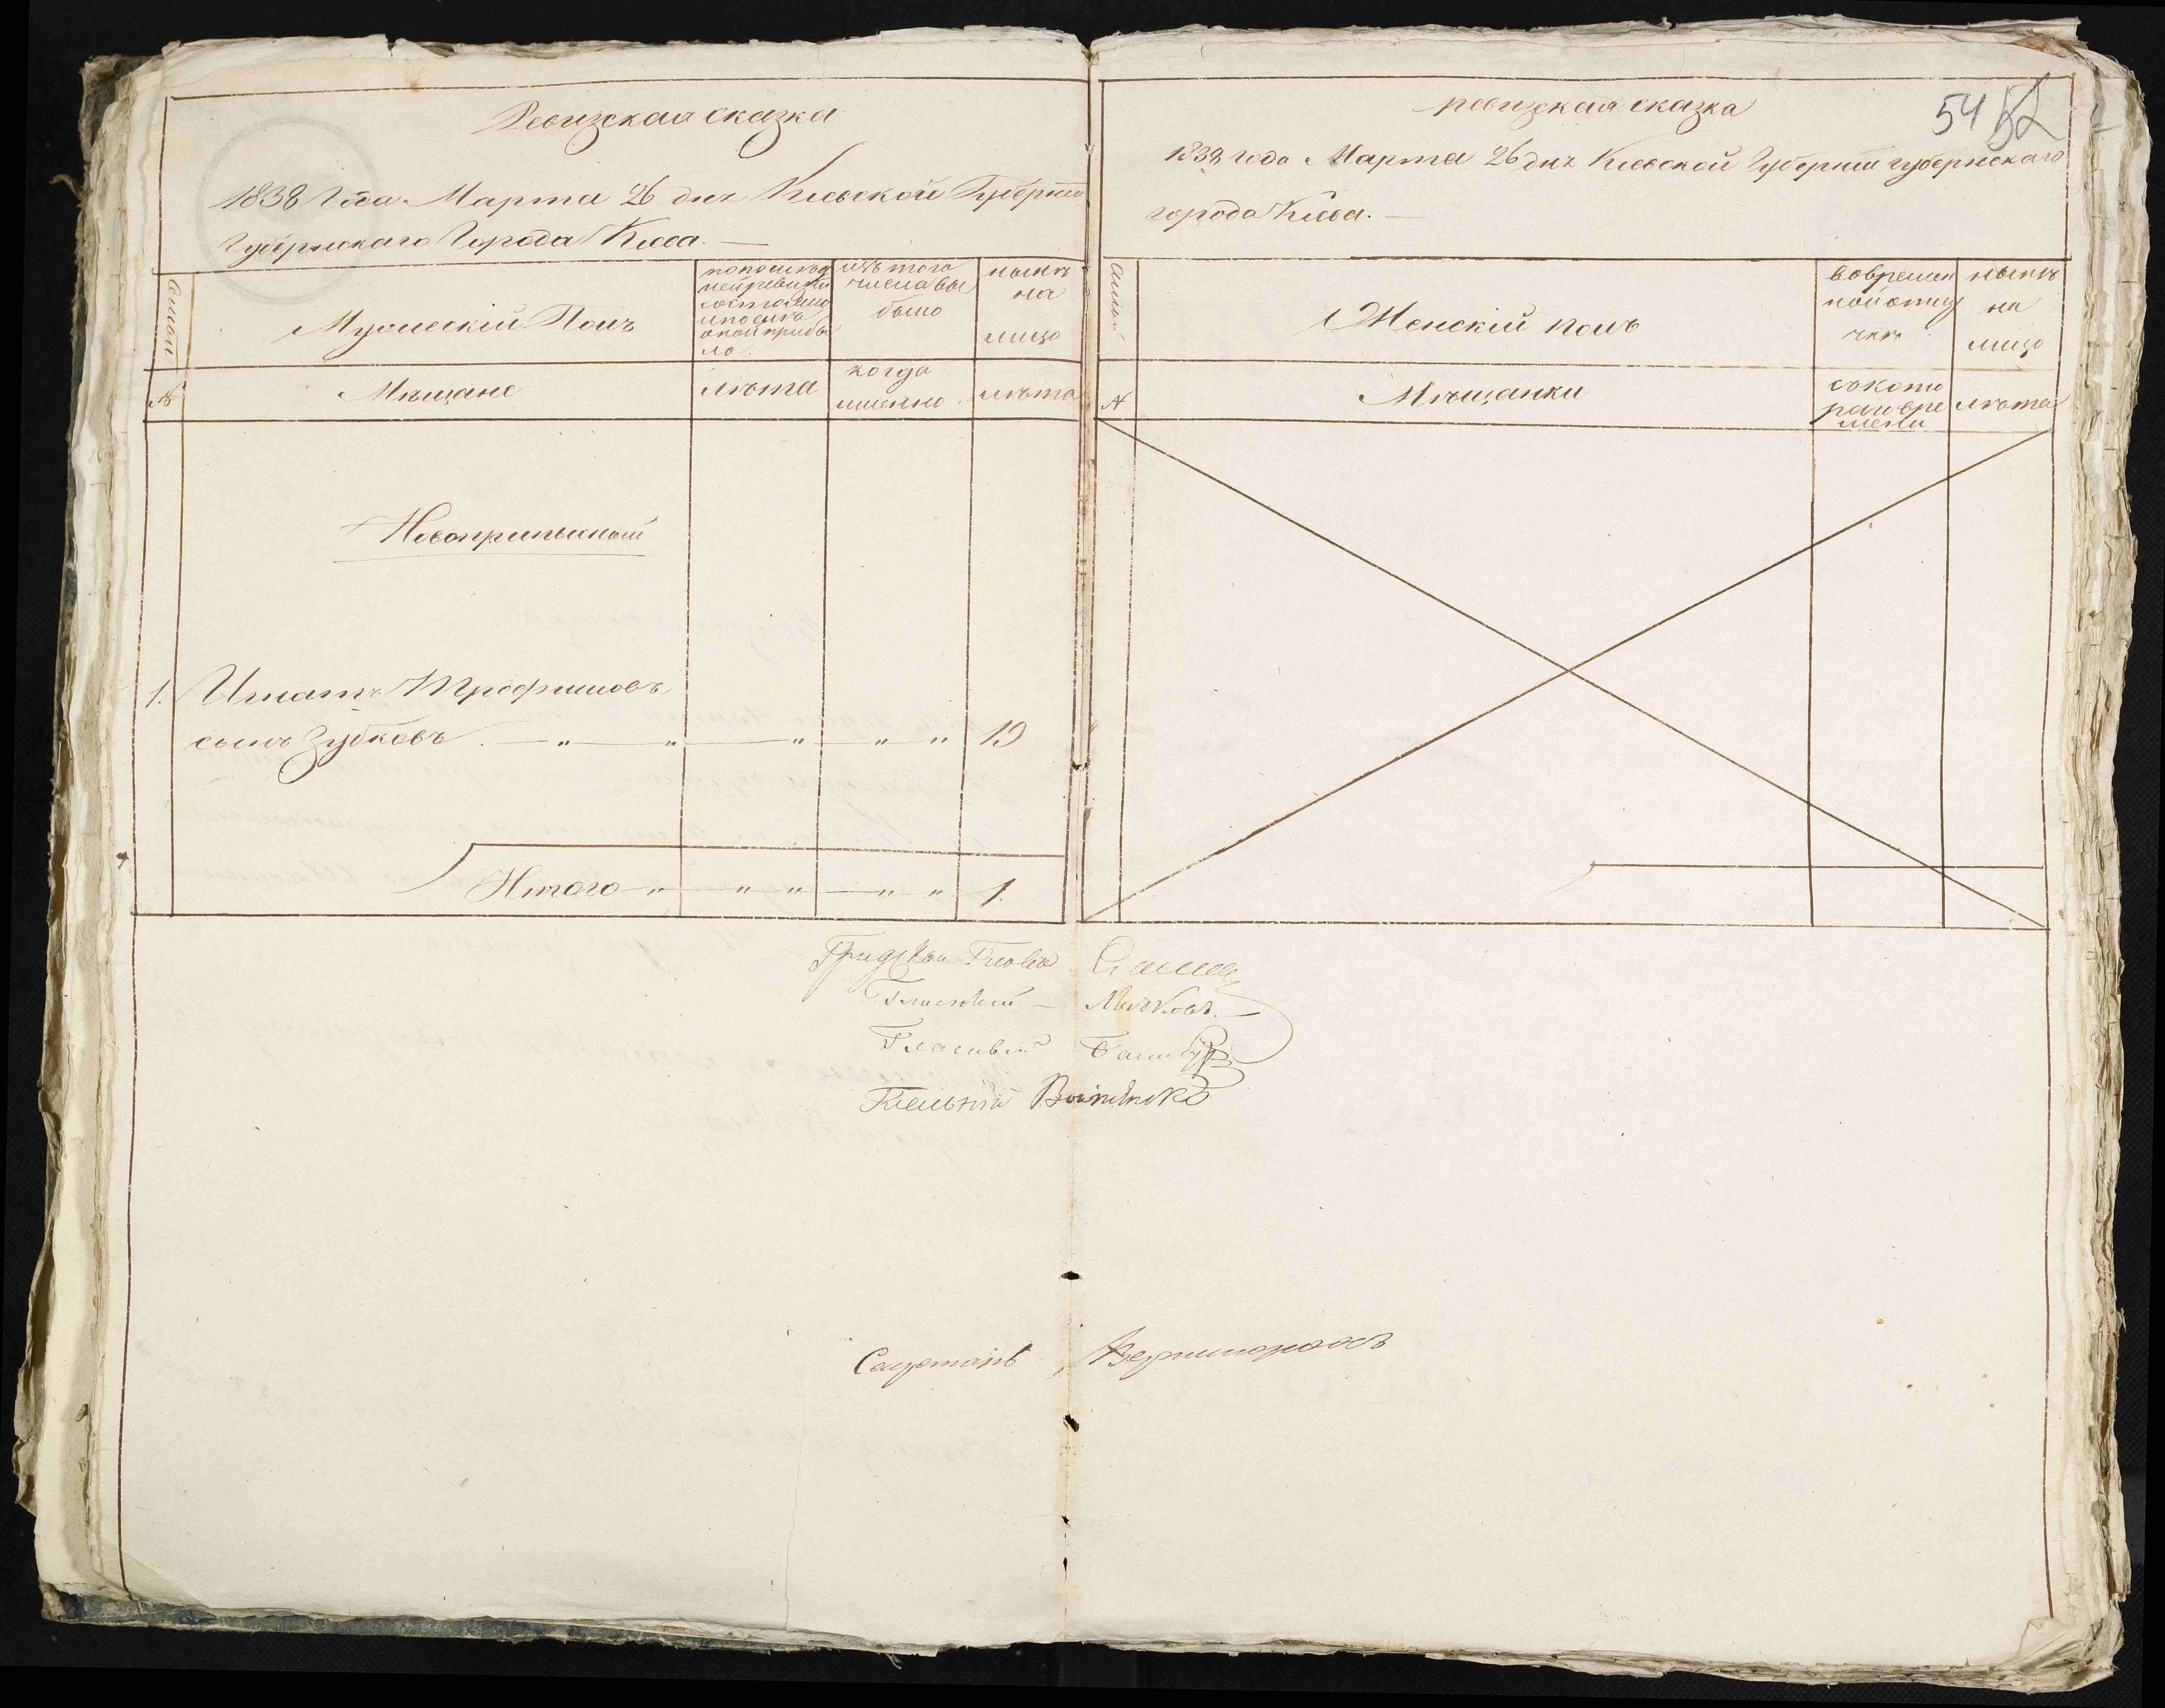 Ревизская сказка
1838 Года Марта 26 дня Кіевской Губерніи
Губернскаго Города Кіева. —
Мужескій Полъ
по послед
ней ревизіи
состояло
и после
оной прибы
ло
изъ того
числа вы
было
ныне
на
лицо
№
Мѣщане
лѣта
когда
именно
лѣта
Новоприписной
1. Игнатъ Трофимовъ
сынъ Зубковъ. — „ — „ — „ — „ „ 19
Итого — „ — „ „ — „ „ 1.
ревизская сказка
54 52
1838 года Марта 26 дня Кіевской Губерніи губернскаго
города Кіева. —
Женскій полъ
во времен
ной отлу
чке
ныне
на
лицо
№
Мѣщанки
съ кото
раго вре
мени
лѣта
Градской Глова
Гласный —
Гласный
Гласный Войтенко
Секретарь